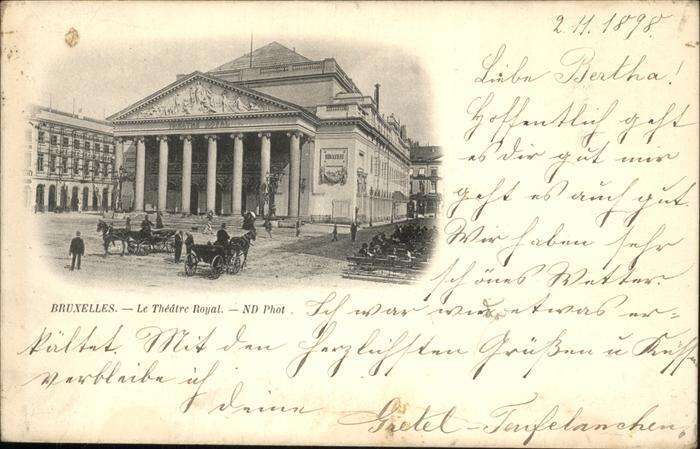 2.11.1898
Liebe Bertha!
Hoffentlich geht
es dir gut mir
geht es auch gut
Wir haben sehr
schönes Wetter.
BRUXELLES. — Le Théâtre Royal. — ND Phot.
Ich war etwas er-
kältet. Mit den herzlichsten Grüßen u Küsse
verbleibe ich
deine Gretel-Teufelanchen.